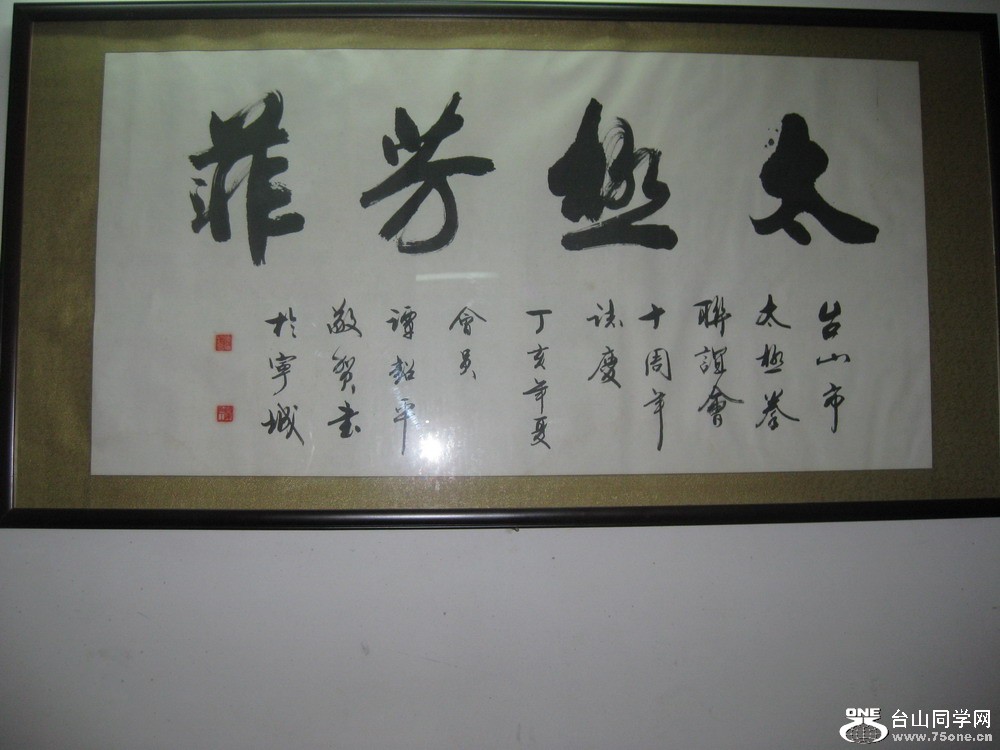 太極芳菲
台山市
太極拳
聯誼會
十周年
誌慶
丁亥年夏
會員
譚超平
敬贺書
於寧城
ONE 台山同学网
www.75one.cn